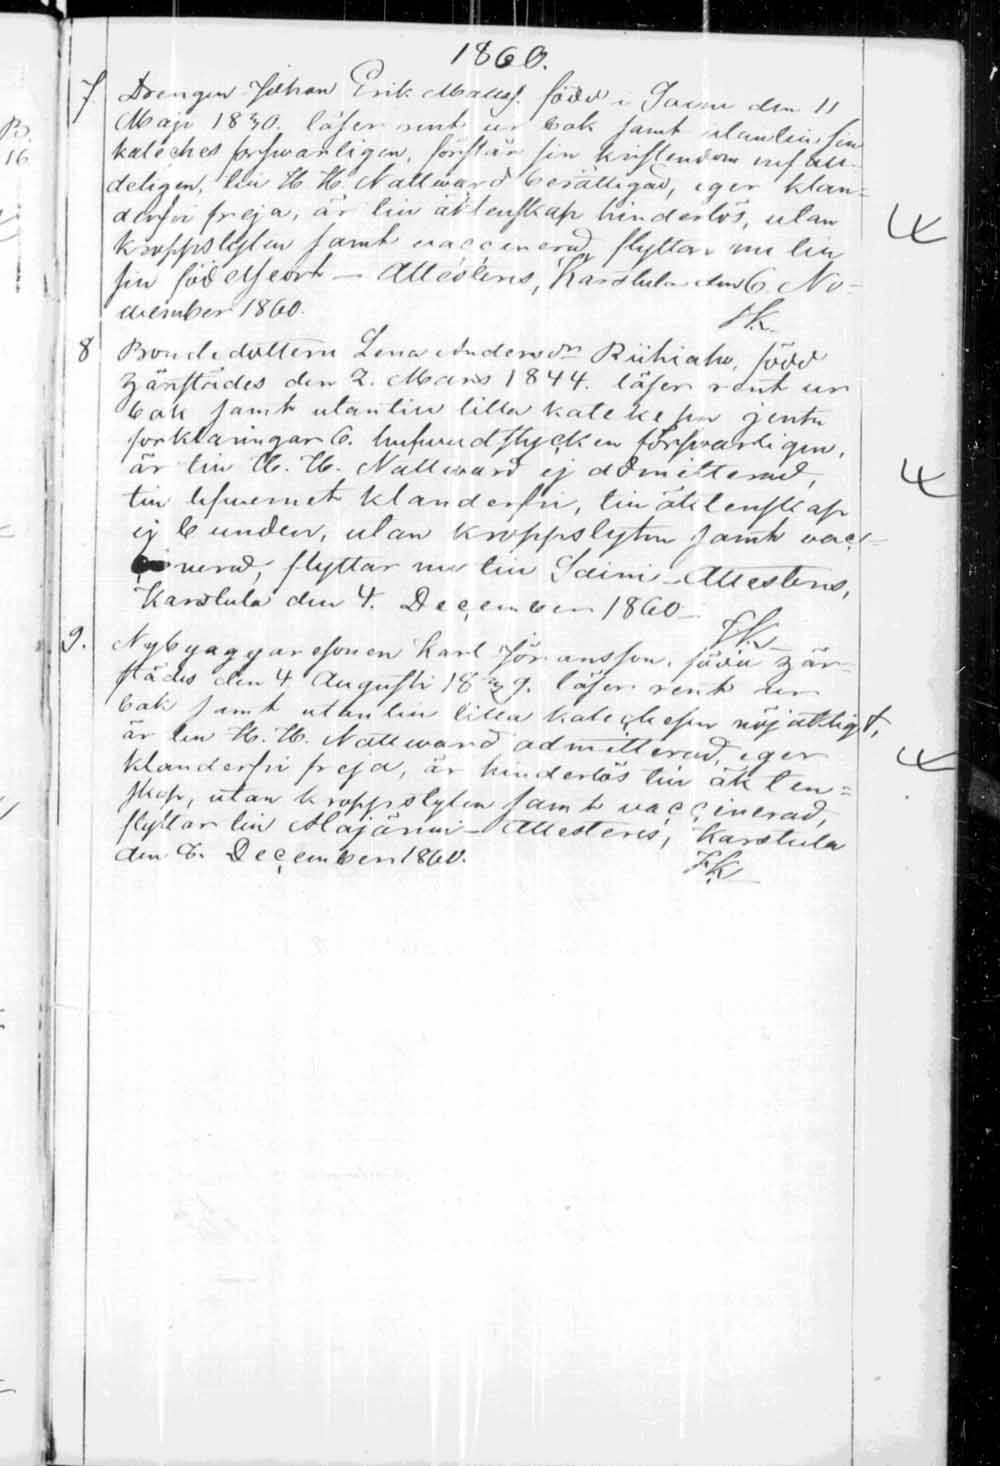 1860.
7 Drengen Johan Erik Mattsf. född i Saini den 11
Maji 1830. läser rent ur bok samt utantill sin
kateches försvarligen, förstår sin kristendom
deligen, till H. H. Nattward berättigad, eger klan=
derfri frejd, är till äktenskap hinderlös, utan
kroppslyten samt vaccinerad, flyttar nu till
sin födelseort – Attesteras, Karstula den 6. No-
vember 1860.
FK
8 Bondedottern Lena Andersdr Riihiaho, född
härstädes den 2. Mars 1844. läser rent ur
bok samt utantill lilla katekesen jemte
förklaringar 6. hufvudstycken försvarligen,
är till H. H. Nattward ej admitterad,
till lefvernet klanderfri, till äktenskap
ej bunden, utan kroppslyten samt vac-
cinerad, flyttar nu till Saini – Attesteras,
Karstula den 4. December 1860 –
FK
9. Nybyggaresonen Karl Johansson, född här-
städes den 4 Augusti 18 9. läser rent ur
bok samt utantill lilla katechesen nöjaktligt,
är till H. H. Nattward admitterad, eger
klanderfri frejd, är hinderlös till äkten=
skap, utan kroppslyten samt vaccinerad,
flyttar till Alajärvi – Attesteras, Karstula
den 8. December 1860.
FK
B.
16